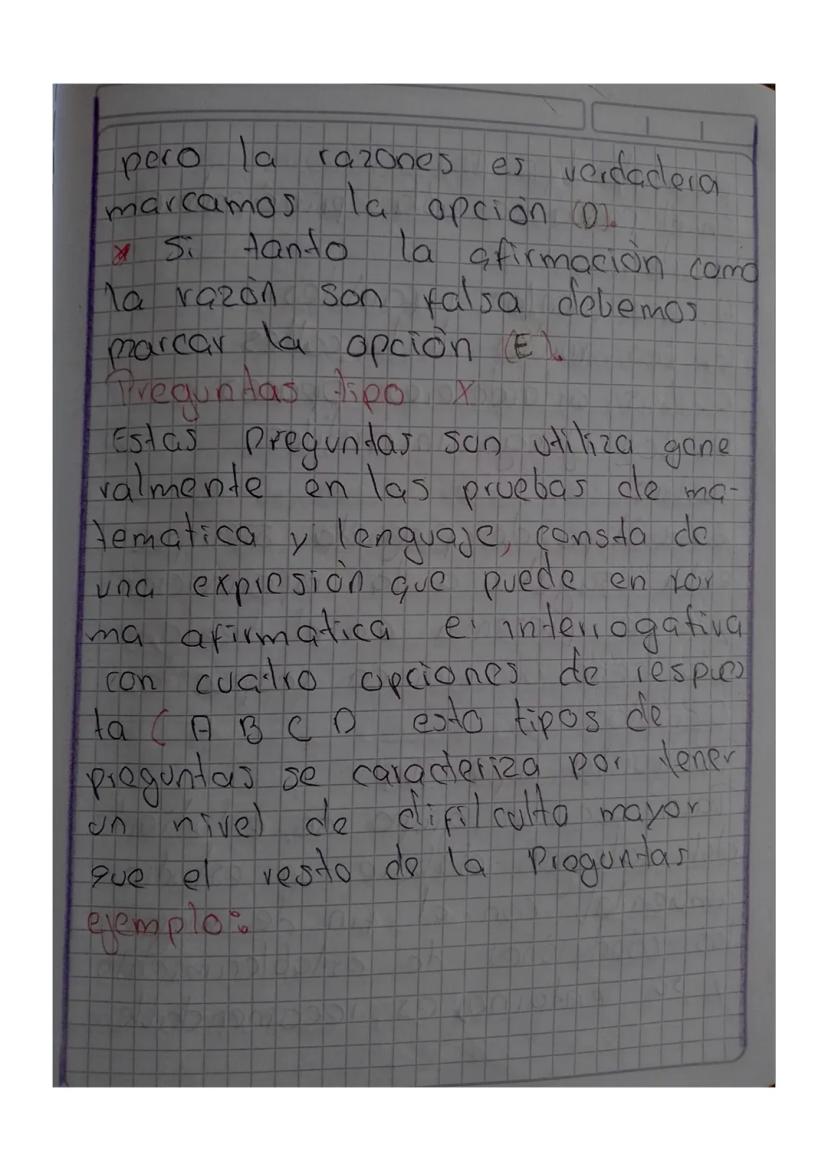 pero la razones es verdadera
marcamos la opción (D).
* Si tanto la afirmación como
la razón son falsa debemos
marcar la opción (E).
Preguntas tipo X
Estas preguntas son utiliza gene
ralmente en las pruebas de ma-
tematica y lenguaje, consta de
una expresión que puede en for
ma afirmatica e interrogativa
con cuatro opciones de respues
ta ( A B C D esto tipos de
preguntas se caracteriza por tener
un nivel de dificulto mayor
que el resto de la preguntas
ejemplo: